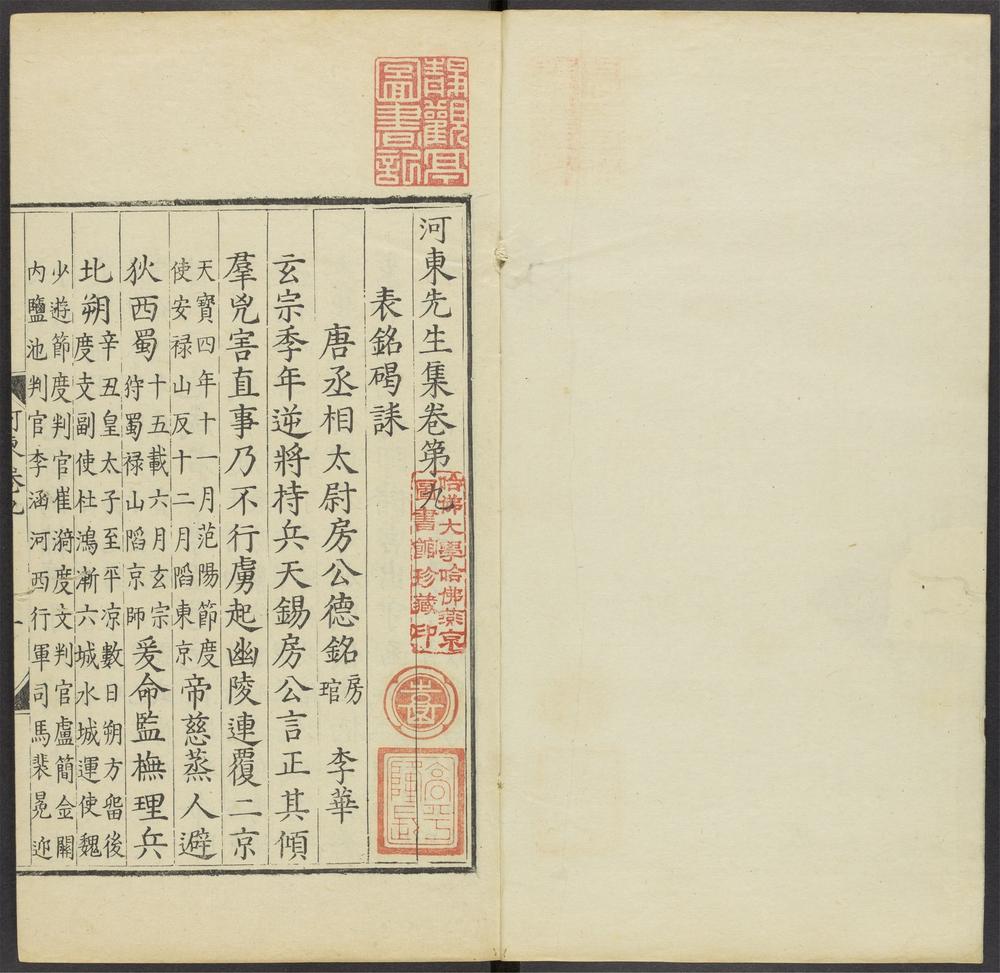 河東先生集卷第九
表銘碣誄
唐丞相太尉房公德銘 房琯 李華
玄宗季年逆將持兵天錫房公言正其傾
羣兇害直事乃不行虜起幽陵連覆二京
天寶四年十一月范陽節度
使安禄山反十二月䧟東京
帝慈蒸人避
狄西蜀
十五載六月玄宗
狩蜀禄山䧟京師
爰命監橅理兵
北朔
辛丑皇太子至平凉數日朔方畱後
度支副使杜鴻漸六城水城運使魏
少遊節度判官崔漪度支判官盧簡金關
内鹽池判官李涵河西行軍司馬裴冕迎
河東卷九
一
靜觀亭
圖書記
哈佛大學哈佛燕京
圖書館珍藏印